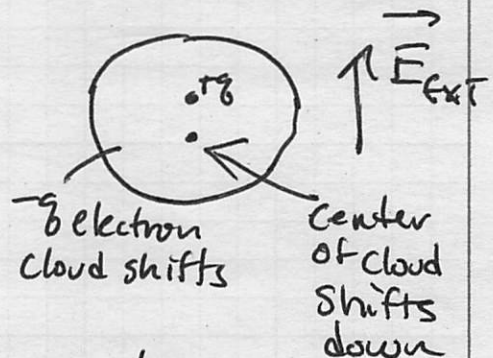 +q
E⃗ EXT
-q electron
cloud shifts
center
of cloud
shifts
down